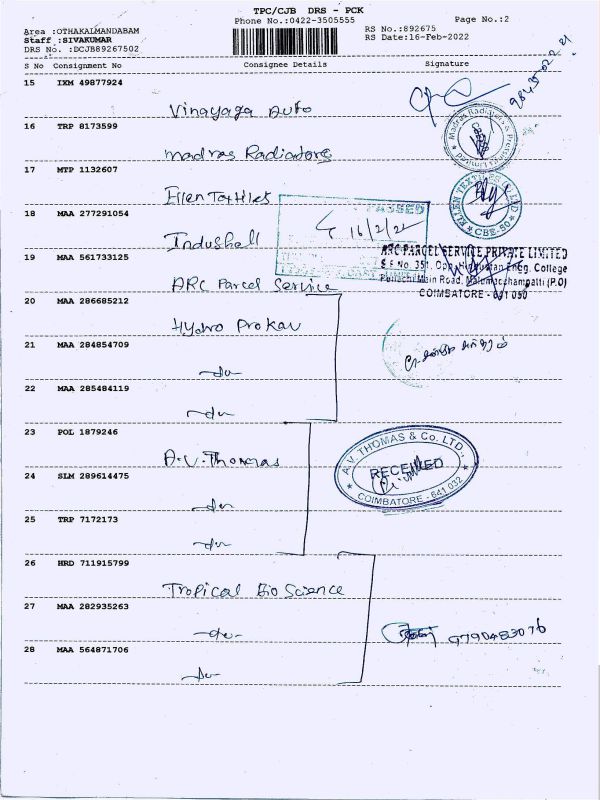 TPC/CJB DRS - PCK
Phone No.:0422-3505555
Page No.:2
Area :OTHAKALMANDABAM
Staff :SIVAKUMAR
DRS No. :DCJB89267502
RS No.:892675
RS Date:16-Feb-2022
S No Consignment No Consignee Details Signature
15 IXM 49877924
Vinayaga Auto
16 TRP 8173599
Madras Radiators
17 MTP 1132607
Ellen Textiles
ELLEN TEXTILES
CBE-50
18 MAA 277291054
PASSED
16/2/22
Indushell
19 MAA 561733125
ARC PARCEL SERVICE PRIVATE LIMITED
S F No. 351, Opp. Hindustan Engg. College
Pollachi Main Road, Malumachampatti (P.O)
COIMBATORE - 641 050
ARC Parcel Service
20 MAA 286685212
Hydro Prokav
21 MAA 284854709
-do-
22 MAA 285484119
-do-
23 POL 1879246
A.V. Thomas
A.V. THOMAS & Co. LTD.,
RECEIVED
COIMBATORE - 641 032
24 SLM 289614475
-do-
25 TRP 7172173
-do-
26 HRD 711915799
Tropical Bio Science
27 MAA 282935263
-do-
9790483076
28 MAA 564871706
-do-